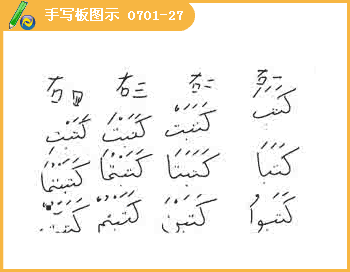 手写板图示 0701-27
右四 右三 右二 右一
كَتَبَ كَتَبَتْ كَتَبْتَ كَتَبْتِ
كَتَبَا كَتَبَتَا كَتَبْتُمَا كَتَبْتُمَا
كَتَبُوا كَتَبْنَ كَتَبْتُمْ